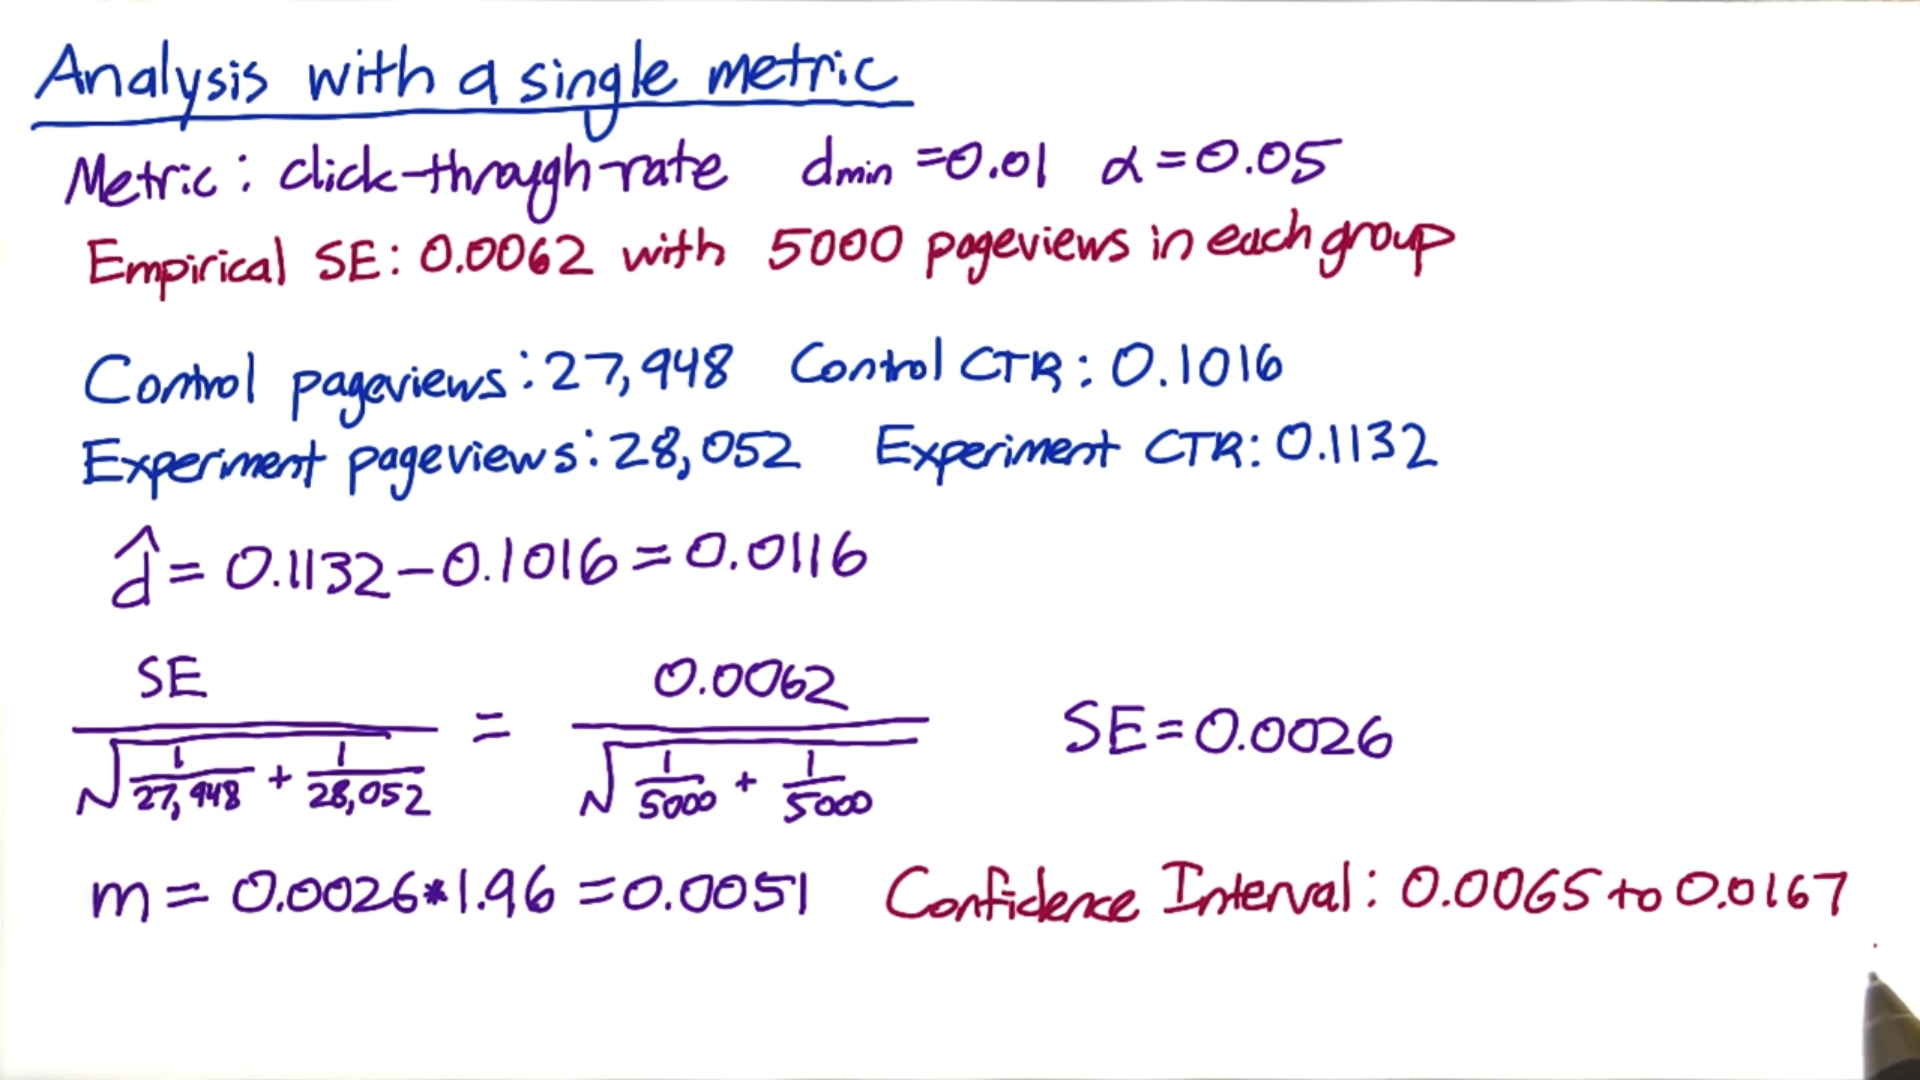 Analysis with a single metric
Metric: click-through-rate dmin = 0.01 α = 0.05
Empirical SE: 0.0062 with 5000 pageviews in each group
Control pageviews: 27,948 Control CTR: 0.1016
Experiment pageviews: 28,052 Experiment CTR: 0.1132
d̂ = 0.1132 - 0.1016 = 0.0116
SE / √(1/27,948 + 1/28,052) = 0.0062 / √(1/5000 + 1/5000) SE = 0.0026
m = 0.0026 * 1.96 = 0.0051 Confidence Interval: 0.0065 to 0.0167